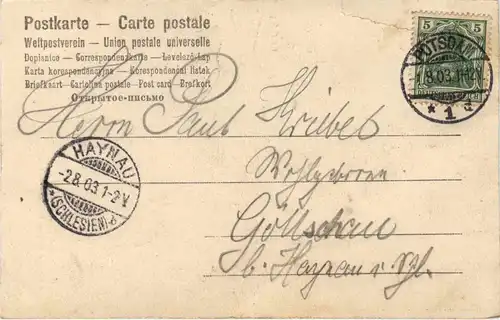 Postkarte — Carte postale
Weltpostverein — Union postale universelle
Dopisnice — Correspondenzkarte — Levelező-Lap
Karta korespondencyjna — Korespondencni listek
Briefkaart—Cartolina postale—Post card—Brefkort
Открытое-письмо
5 5
POTSDAM
1.8.03.1-2N
* 1 d
Herrn Paul Kriebel
HAYNAU
-2.8.03.1-2V
*(SCHLESIEN)-d
Wohlgeboren
Göllschau
b. Haynau i. Schl.